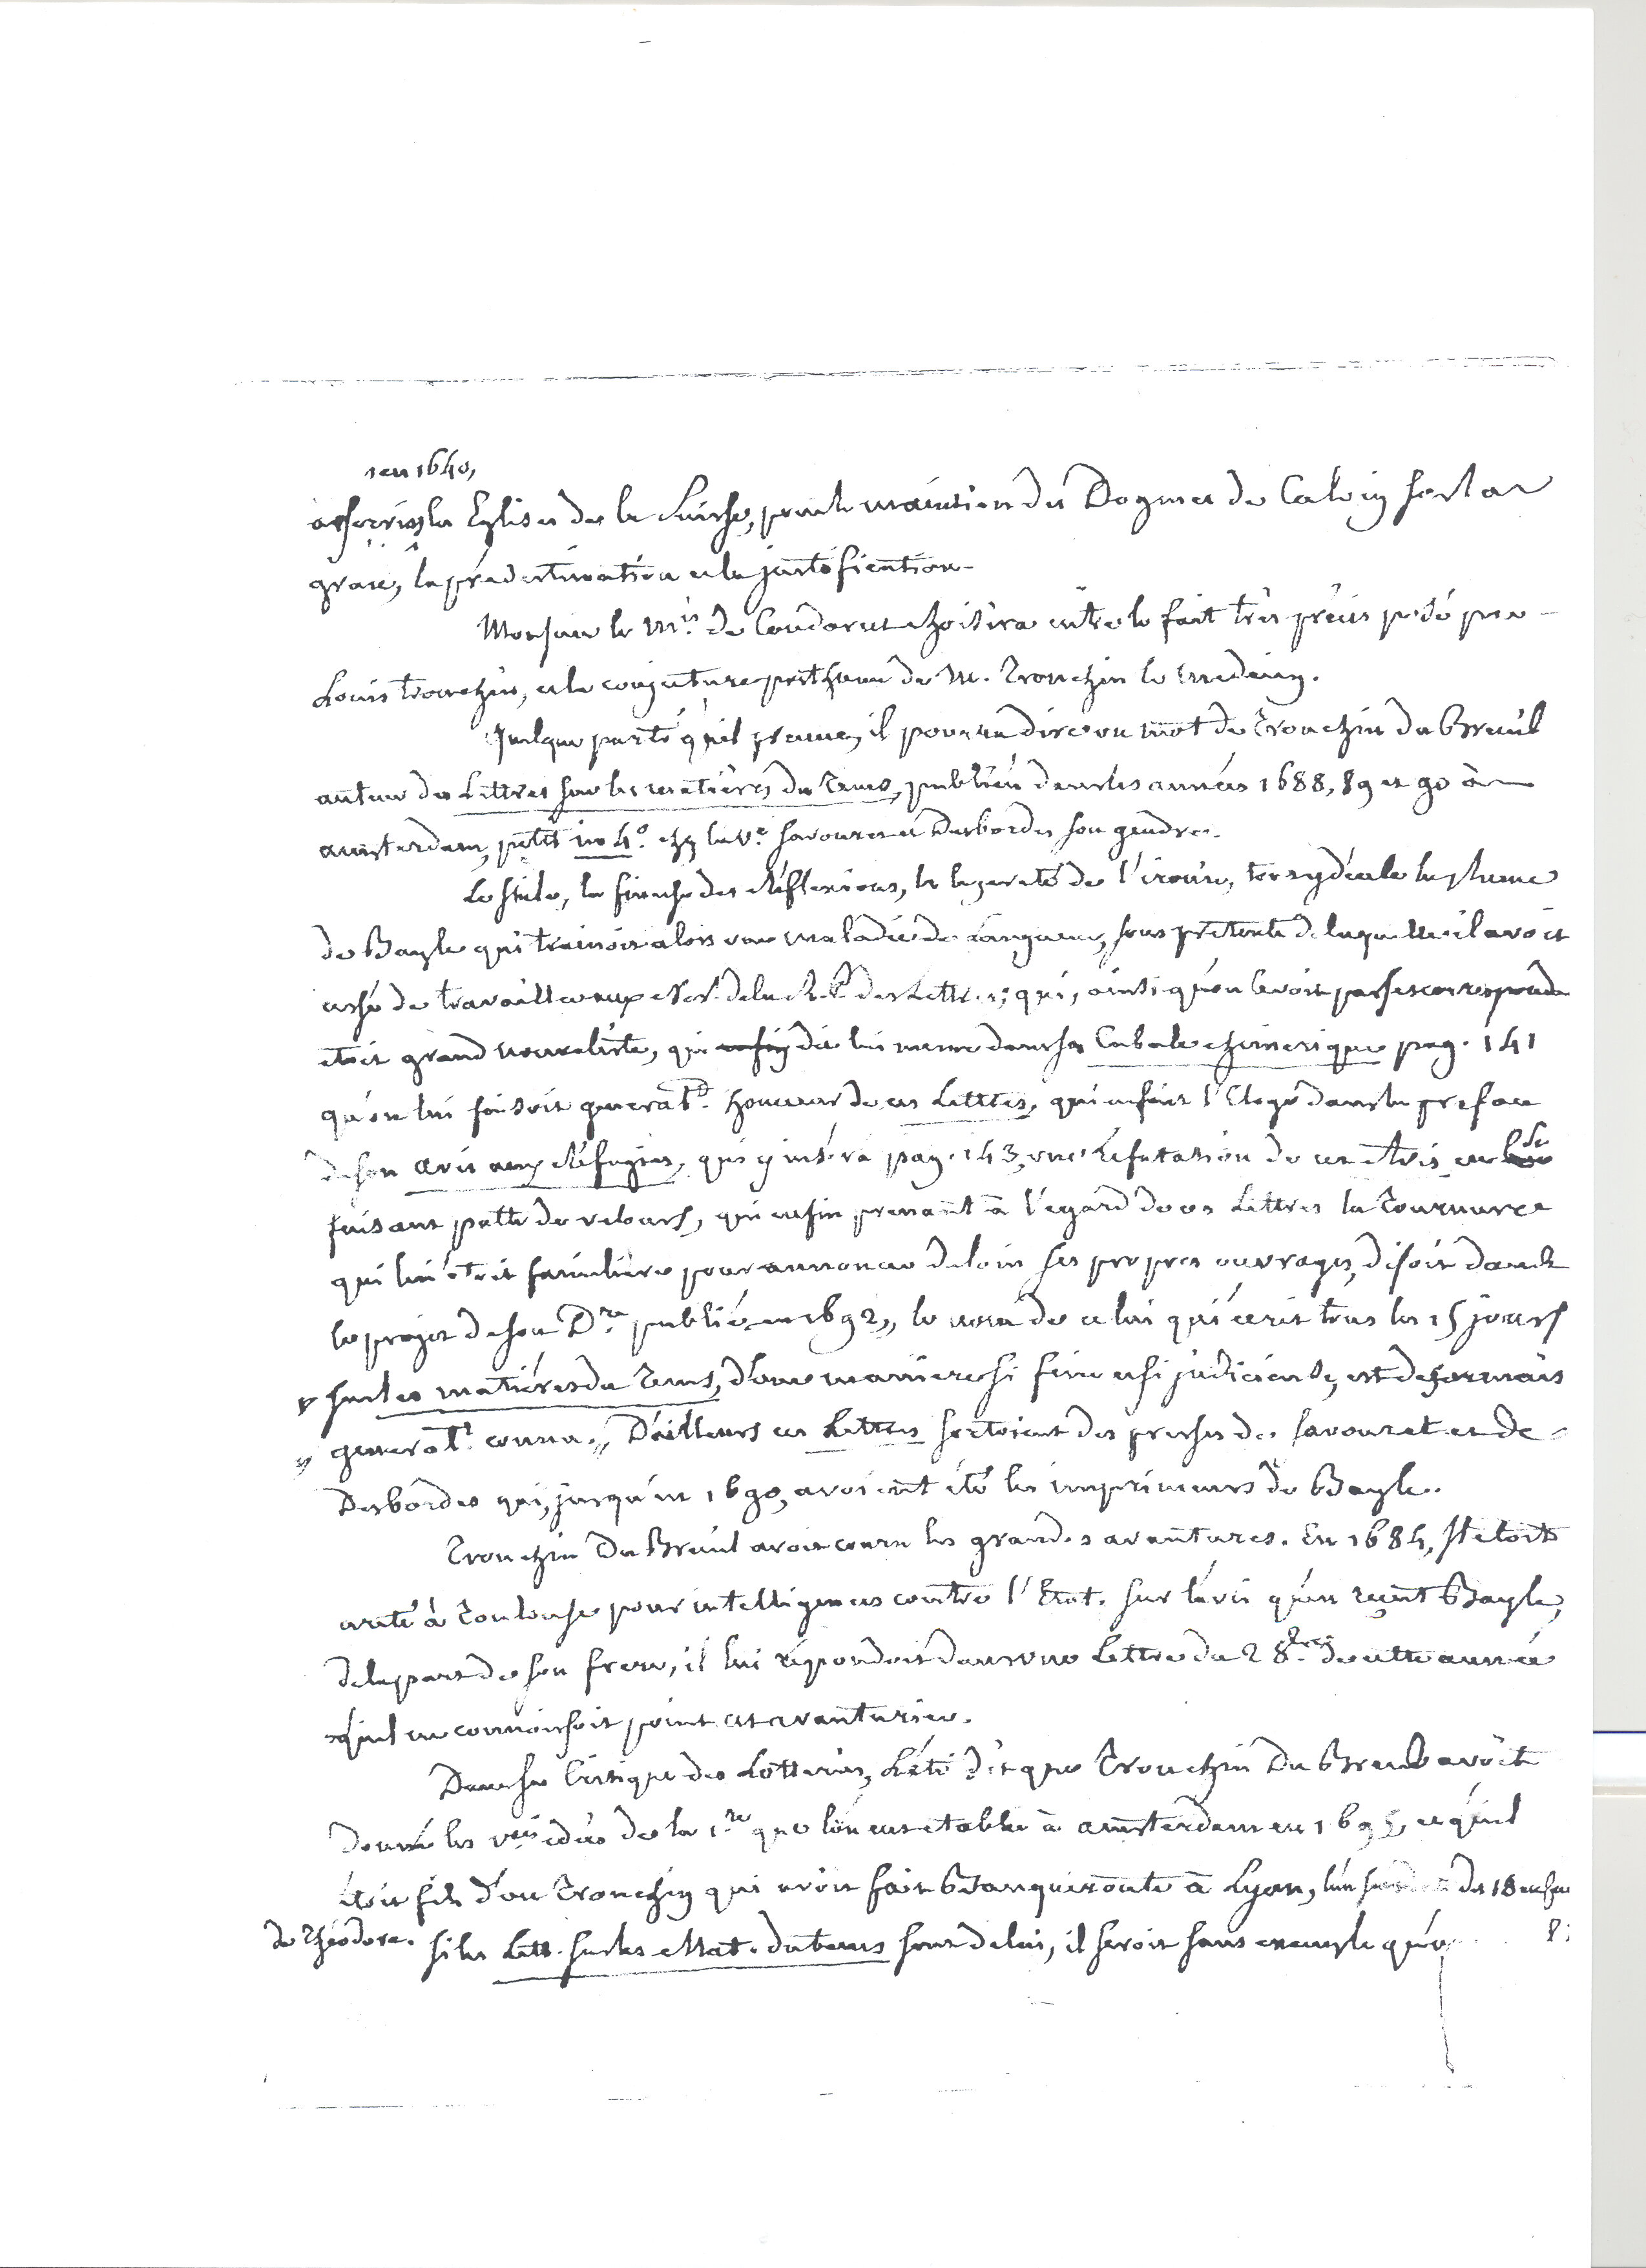 en 1640,
les Eglises de la Suisse, pour le maintien du Dogme de Calvin sur la
grace, la prédestination et la justification.
Monsieur le M.is de Condorcet choisira entre le fait très précis posé par
Louis Tronchin, et la conjecture posthume de M. Tronchin le medecin.
Quelque parti qu'il prenne, il pourra dire un mot de Tronchin du Breuil
auteur des Lettres sur les matières du Tems, publiées dans les années 1688, 89 et 90 à
amsterdam, petit in 4.o chez la v.e Savouret et Desbordes son gendre.
Le stile, la finesse des Réflexions, la legereté de l'ironie, tout y décele la plume
de Bayle qui trainoit alors une maladie de Langueur, sous prétexte de laquelle il avoit
cessé de travailler aux Nov. de la Rep. des Lettres; qui, ainsi qu'on le voit par ses correspond.
étoit grand nouveliste, qui dit lui meme dans sa Cabale chimerique pag. 141
qu'on lui faisoit general.t honneur de ces Lettres, qui en fait l'Eloge dans la preface
de son avis aux Réfugiés, qui y inséra pag. 143, une Refutation de cet Avis en
faisant patte de velours, qui enfin prenant à l'egard de ces Lettres la Tournure
qui lui étoit familière pour annoncer de loin ses propres ouvrages, disoit dans
le projet de son D.re publié en 1692, "le nom de celui qui écrit tous les 15 jours
" sur les matières du Tems, d'une maniere si fine et si judicieuse, est desormais
" general.t connu." D'ailleurs ces Lettres sortoient des presses de Savouret et de
Desbordes qui, jusqu'en 1690, avoient été les imprimeurs de Bayle.
Tronchin Du Breuil avoit couru les grandes avantures. En 1684, il etoit
areté à Toulouse pour intelligences contre l'Etat. Sur l'avis qu'en reçut Bayle,
de la part de son frere, il lui répondoit dans une Lettre du 2 8.bre de cette année
qu'il ne connoissoit point cet avanturier.
Dans sa Critique des Lotteries, Léti dit que Tronchin Du Breuil avoit
donné les idées de la 1.re que l'on eut etablie à amsterdam en 1695, et qu'il
étoit fils d'un Tronchin qui avoit fait Banqueroute à Lyon, l'un des 18 enfans
de Théodore. Si les Lett. sur les Mat. du tems sont de lui, il seroit sans exemple qu'